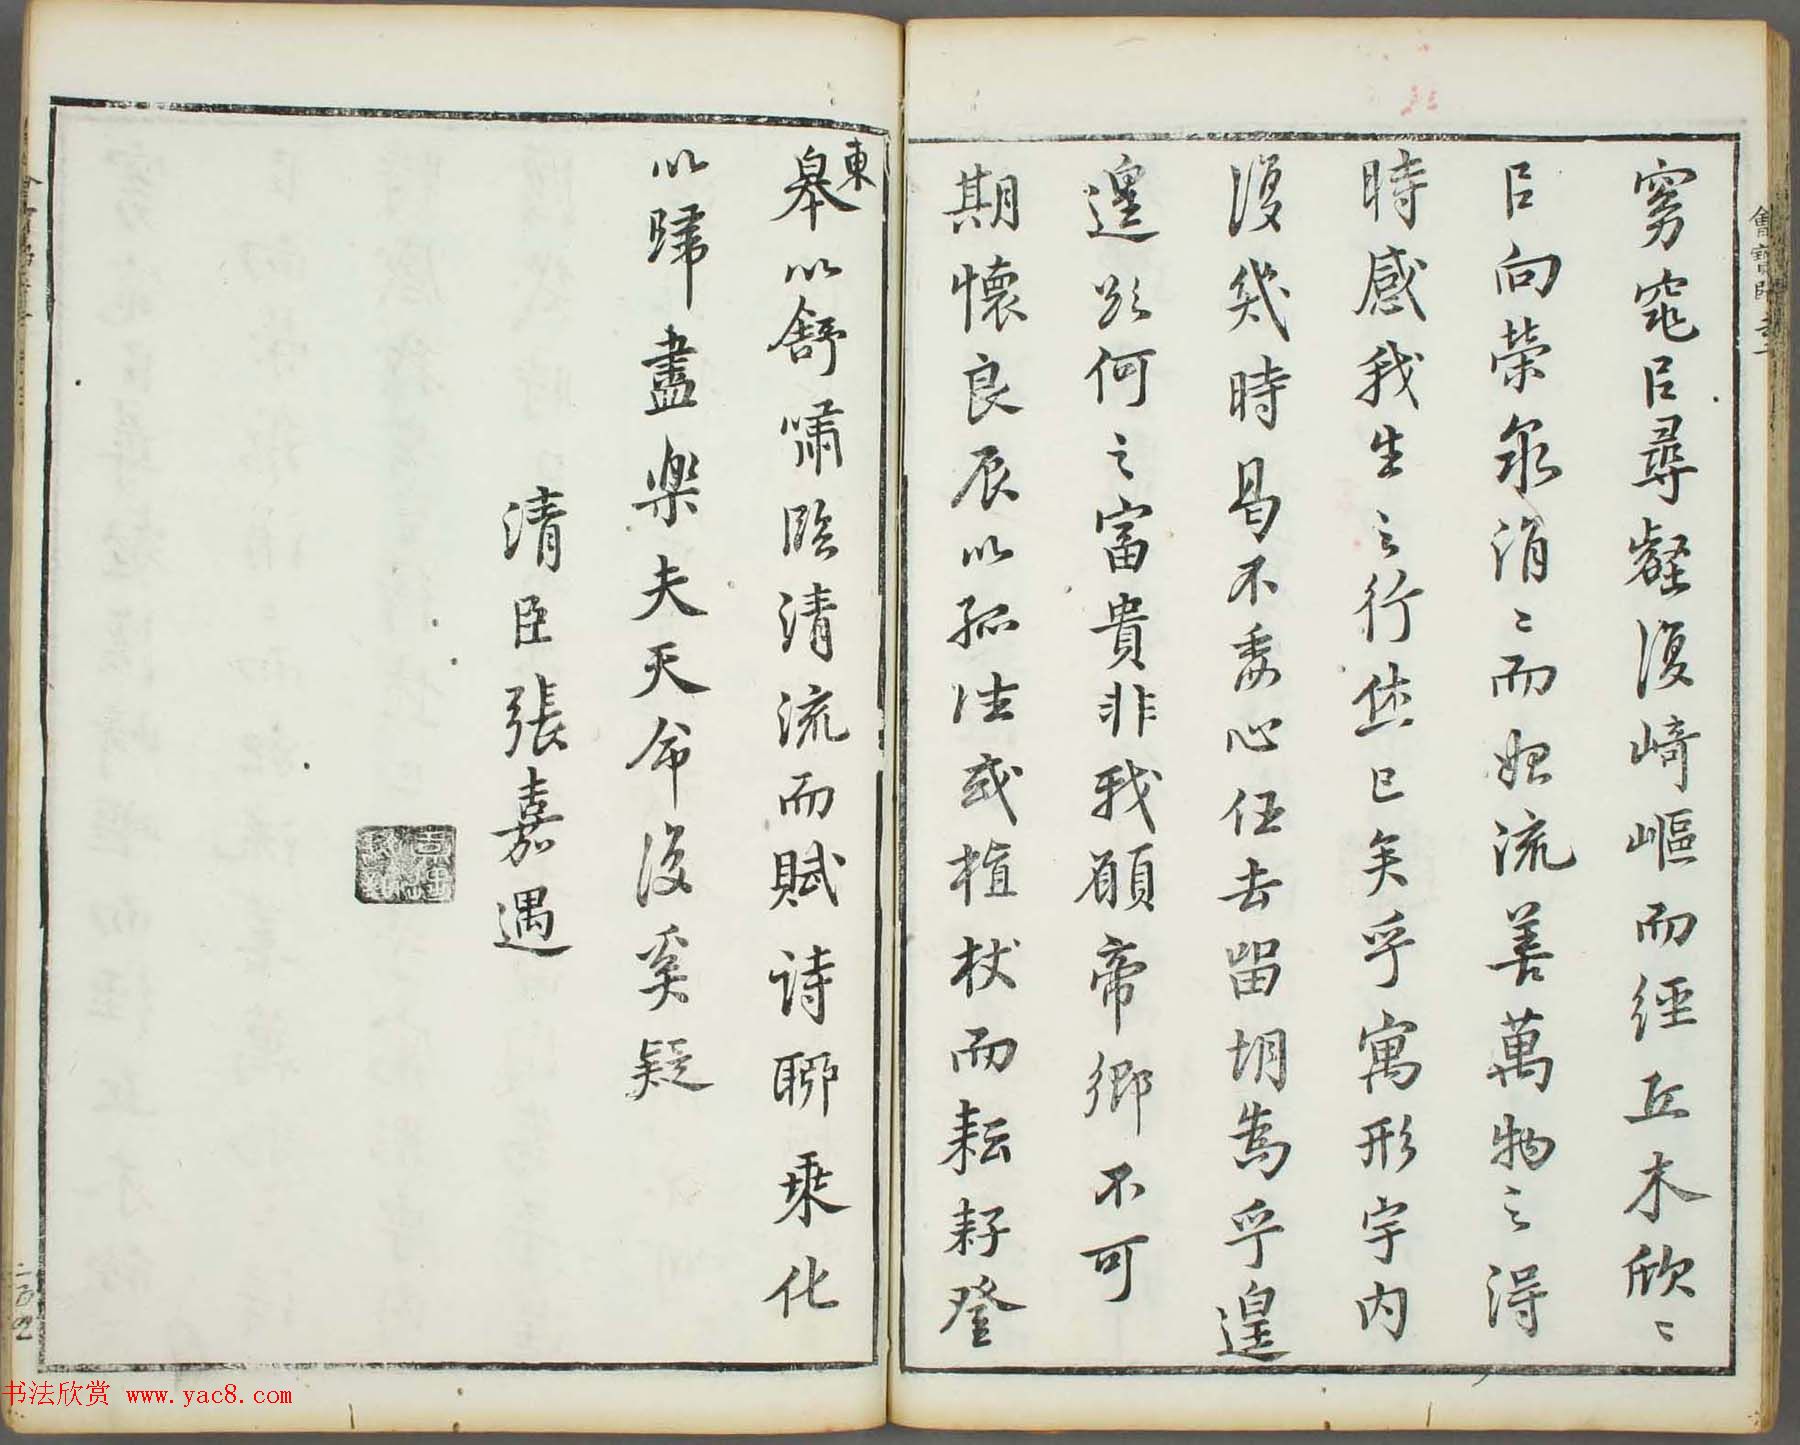 窈窕㠯尋壑復崎嶇而經丘木欣〻
㠯向荣泉涓〻而始流善萬物之淂
時感我生之行休已矣乎寓形宇内
復幾時曷不委心任去留胡為乎遑
遑欲何之富貴非我願帝鄉不可
期懷良辰以孤往或植杖而耘耔登
東
皋以舒嘯臨清流而賦诗聊乘化
以歸盡樂夫天命復奚疑
清臣張嘉遇
二百四
书法欣赏 www.yac8.com